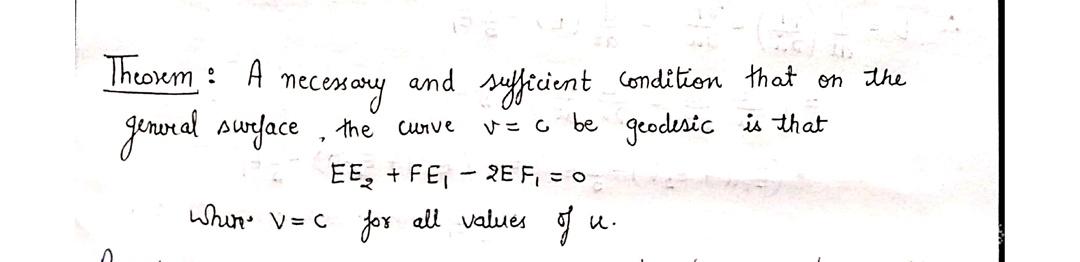 Theorem : A necessary and sufficient condition that on the
general surface , the curve v = c be geodesic is that
EE₂ + FE₁ - 2EF₁ = 0
when v = c for all values of u.